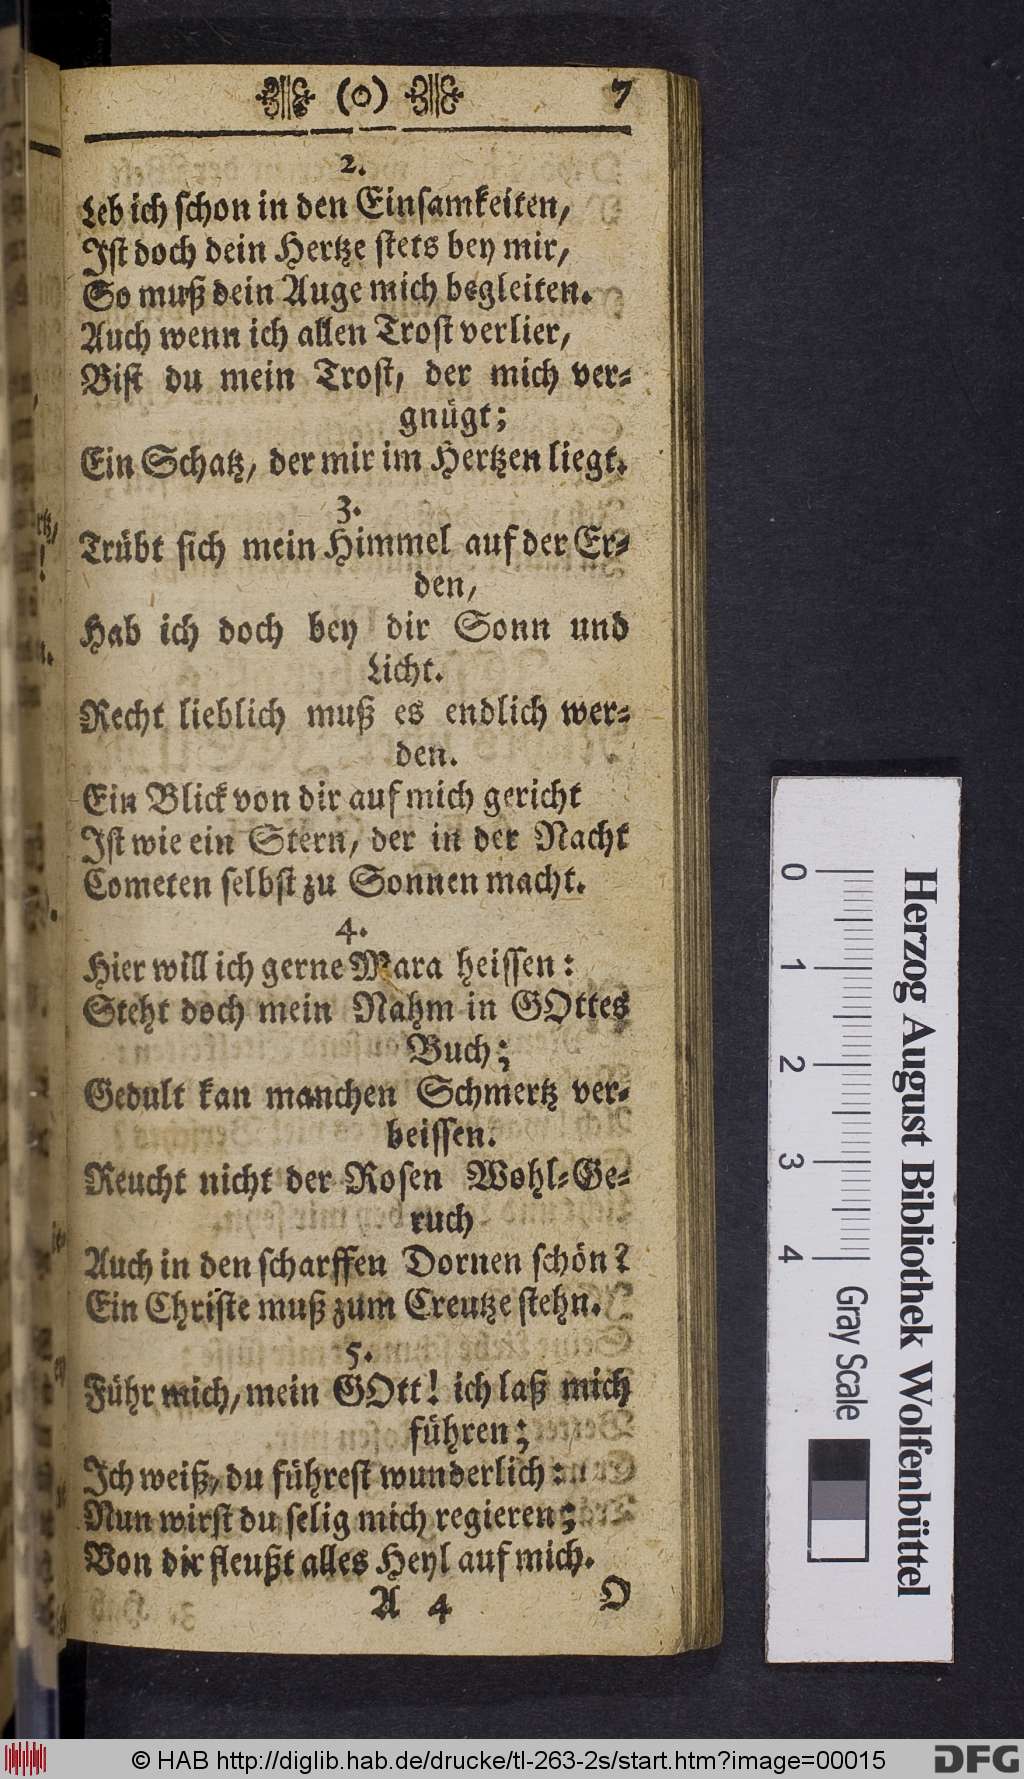 (o) 7
2.
Leb ich schon in den Einsamkeiten,
Ist doch dein Hertze stets bey mir,
So muß dein Auge mich begleiten.
Auch wenn ich allen Trost verlier,
Bist du mein Trost, der mich ver-
gnügt;
Ein Schatz, der mir im Hertzen liegt.
3.
Trübt sich mein Himmel auf der Er-
den,
Hab ich doch bey dir Sonn und
Licht.
Recht lieblich muß es endlich wer-
den.
Ein Blick von dir auf mich gericht
Ist wie ein Stern, der in der Nacht
Cometen selbst zu Sonnen macht.
4.
Hier will ich gerne Mara heissen:
Steht doch mein Nahm in GOttes
Buch;
Gedult kan manchen Schmertz ver-
beissen.
Reucht nicht der Rosen Wohl-Ge-
ruch
Auch in den scharffen Dornen schön?
Ein Christe muß zum Creutze stehn.
5.
Führ mich, mein GOtt! ich laß mich
führen;
Ich weiß, du führest wunderlich:
Nun wirst du selig mich regieren;
Von dir fleußt alles Heyl auf mich.
A 4 O
Herzog August Bibliothek Wolfenbüttel
0 1 2 3 4 Gray Scale
© HAB http://diglib.hab.de/drucke/tl-263-2s/start.htm?image=00015 DFG